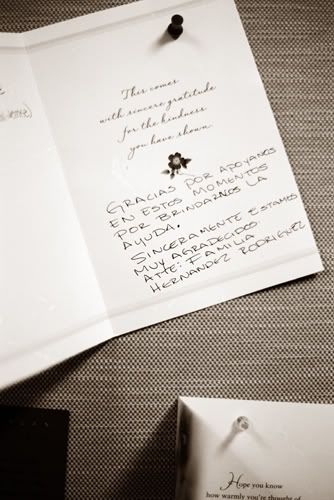 This comes
with sincere gratitude
for the kindness
you have shown.
GRACIAS POR APOYARNOS
EN ESTOS MOMENTOS
POR BRINDARNOS LA
AYUDA.
SINCERAMENTE ESTAMOS
MUY AGRADECIDOS
ATTE: FAMILIA
HERNANDEZ RODRIGUEZ
Hope you know
how warmly you're thought of